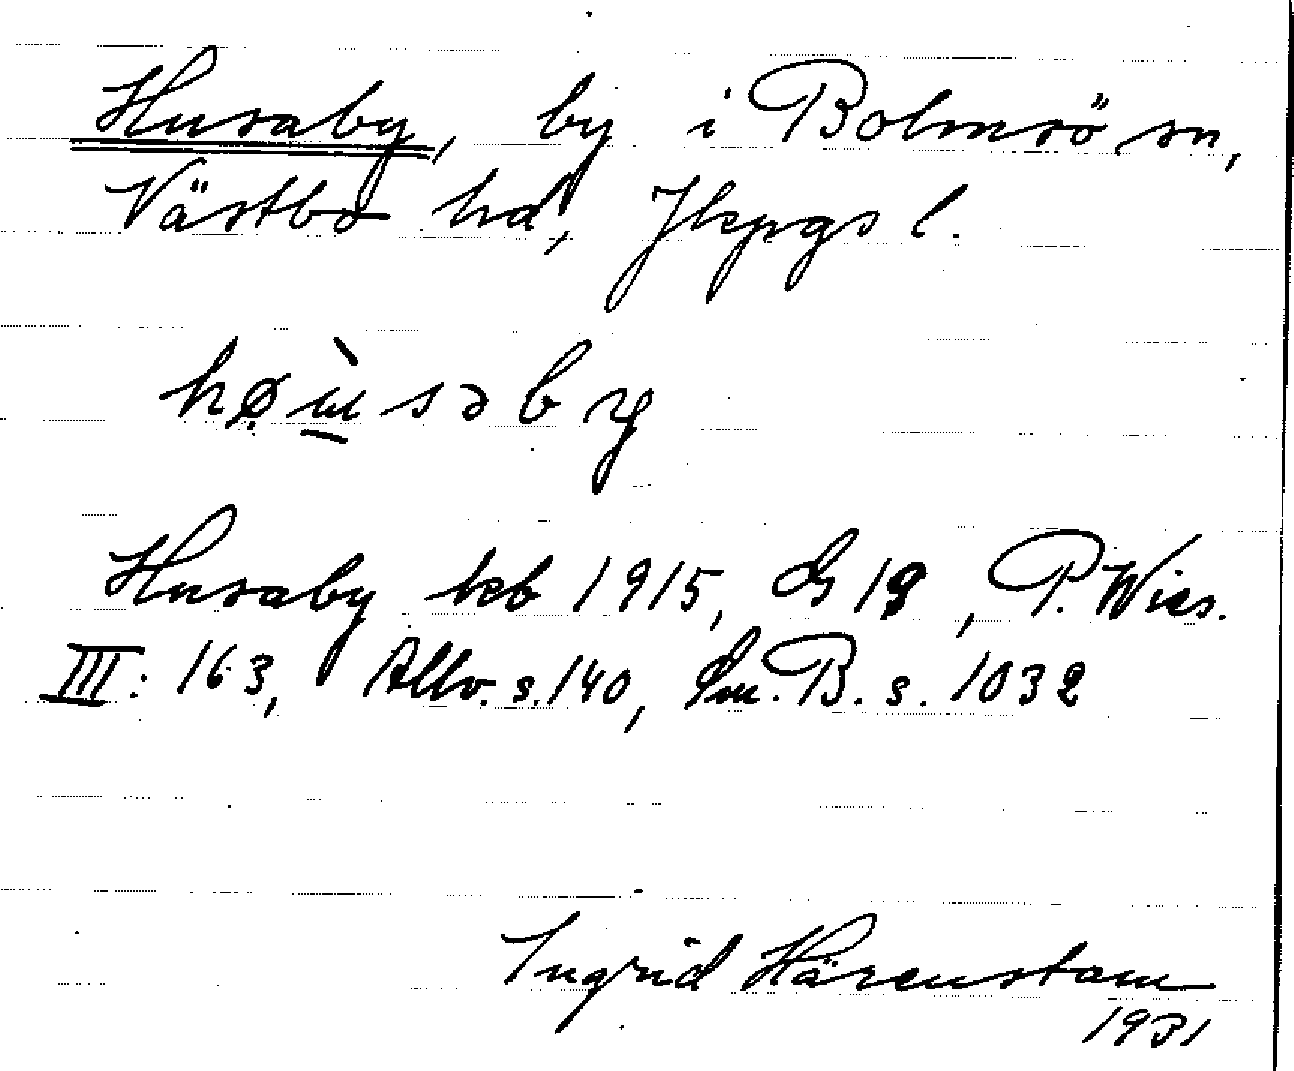 Husaby, by i Bolmsö sn,
Västbo hd, Jkpgs l.
Husaby kb 1915, G 19, P. Wies.
III: 163, Allv. s. 140, Sm. B. s. 1032
Ingrid Härenstam
1931